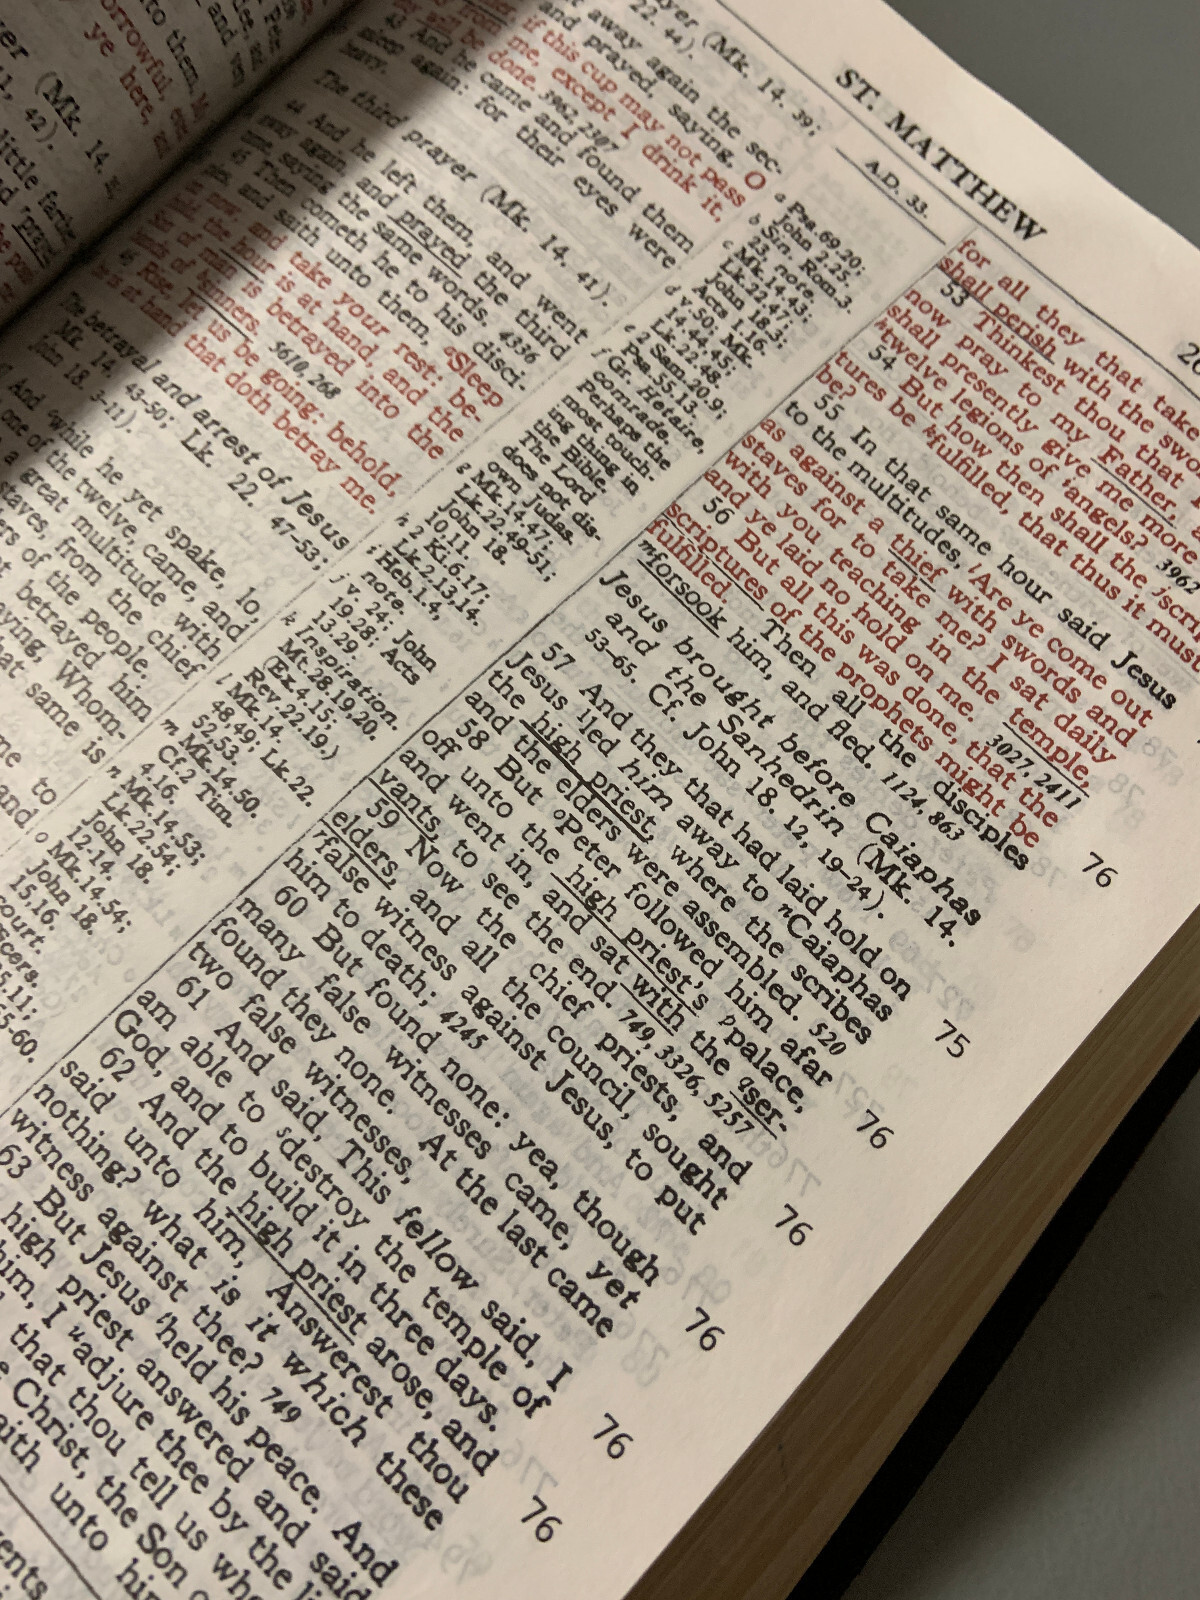 ST. MATTHEW
A.D. 33.
yer (Mk. 14. 39;
22. 44).
away again the sec-
and prayed, saying, O
if this cup may not pass
me, except I drink it,
be done. 3962, 2307
43 And he came and found them
again: for their eyes were
heavy.
The third prayer (Mk. 14. 41).
44 And he left them, and went
away again, and prayed the third
time, saying the same words. 4336
45 Then cometh he to his disci-
and saith unto them, Sleep
now, and take your rest: be-
the hour is at hand, and the
Son of man is betrayed into the
hands of sinners. 3610, 268
46 Rise, let us be going: behold,
he is at hand that doth betray me.
The betrayal and arrest of Jesus
Mk. 14. 43-50; Lk. 22. 47-53;
John 18. 3-11).
And while he yet spake, lo,
one of the twelve, came, and
a great multitude with
staves, from the chief
of the people.
betrayed him
Whom-
that same is
me to
and
a Psa. 69.20;
John 2.25.
b Sin. Rom.3.
23, note.
c Mk.14.43;
Lk.22.47;
John 18.3;
Acts 1.16.
d v.50, Mk.
14.44,45;
Lk.22.48.
e 2 Sam.20.9;
Psa.55.13.
f Gr. Hetaire,
comrade.
Perhaps the
most touch-
ing thing in
the Bible.
The Lord
does not dis-
own Judas.
g Mk.14.47;
Lk.22.49-51;
John 18.
10,11.
h 2 Ki.6.17;
Lk.2.13,14.
i Heb.1.4,
note.
j v. 24; John
19.28; Acts
13.29.
k Inspiration.
Mt.28.19,20.
(Ex.4.15;
Rev.22.19.)
l Mk.14.
48,49; Lk.22.
52,53.
m Mk.14.50.
Cf.2 Tim.
4.16.
n Mk.14.53;
Lk.22.54;
John 18.
12-14.
o Mk.14.54;
John 18.
15,16.
court.
5.11;
55-60.
for all they that take
shall perish with the swo
53 Thinkest thou that
now pray to my Father,
shall presently give me more
twelve legions of angels? 3962
54 But how then shall the scri
tures be fulfilled, that thus it must
be?
55 In that same hour said Jesus
to the multitudes, Are ye come out
as against a thief with swords and
staves for to take me? I sat daily
with you teaching in the temple,
and ye laid no hold on me. 3027, 2411
56 But all this was done, that the
scriptures of the prophets might be
fulfilled. Then all the disciples
forsook him, and fled. 1124, 863
Jesus brought before Caiaphas
and the Sanhedrin (Mk. 14.
53-65. Cf. John 18. 12, 19-24).
57 And they that had laid hold on
Jesus led him away to Caiaphas
the high priest, where the scribes
and the elders were assembled. 520
58 But Peter followed him afar
off unto the high priest's palace,
and went in, and sat with the ser-
vants, to see the end. 749, 3326, 5257
59 Now the chief priests, and
elders, and all the council, sought
false witness against Jesus, to put
him to death; 4245
60 But found none: yea, though
many false witnesses came, yet
found they none. At the last came
two false witnesses,
61 And said, This fellow said, I
am able to destroy the temple of
God, and to build it in three days.
62 And the high priest arose, and
said unto him, Answerest thou
nothing? what is it which these
witness against thee? 749
63 But Jesus held his peace. And
high priest answered and said
him, I adjure thee by the li
that thou tell us whe
Christ, the Son o
unto hi
76
75
76
76
76
76
76